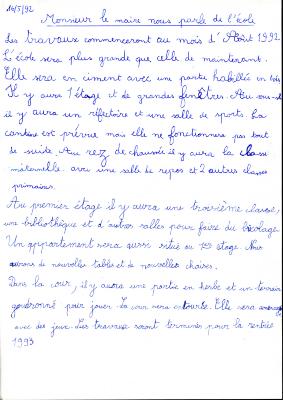 16/5/92
Monsieur le maire nous parle de l'école
Les travaux commenceront au mois d'Août 1992
L'école sera plus grande que celle de maintenant.
Elle sera en ciment avec une partie habillée en bois
Il y aura 1 étage et de grandes fenêtres. Au
il y aura un réfectoire et une salle de sports. La
cantine est prévue mais elle ne fonctionnera pas tout
de suite. Au rez de chaussée il y aura la classe
maternelle. avec une salle de repos et 2 autres classes
primaires.
Au premier étage il y aura une troisième classe,
une bibliothèque et d'autres salles pour faire du
Un appartement sera aussi situé au 1er étage. Nous
aurons de nouvelles tables et de nouvelles chaises.
Dans la cour, il y aura une partie en herbe et un terrain
goudronné pour jouer. La cour sera entourée. Elle sera
avec des jeux. Les travaux seront terminés pour la rentrée
1993